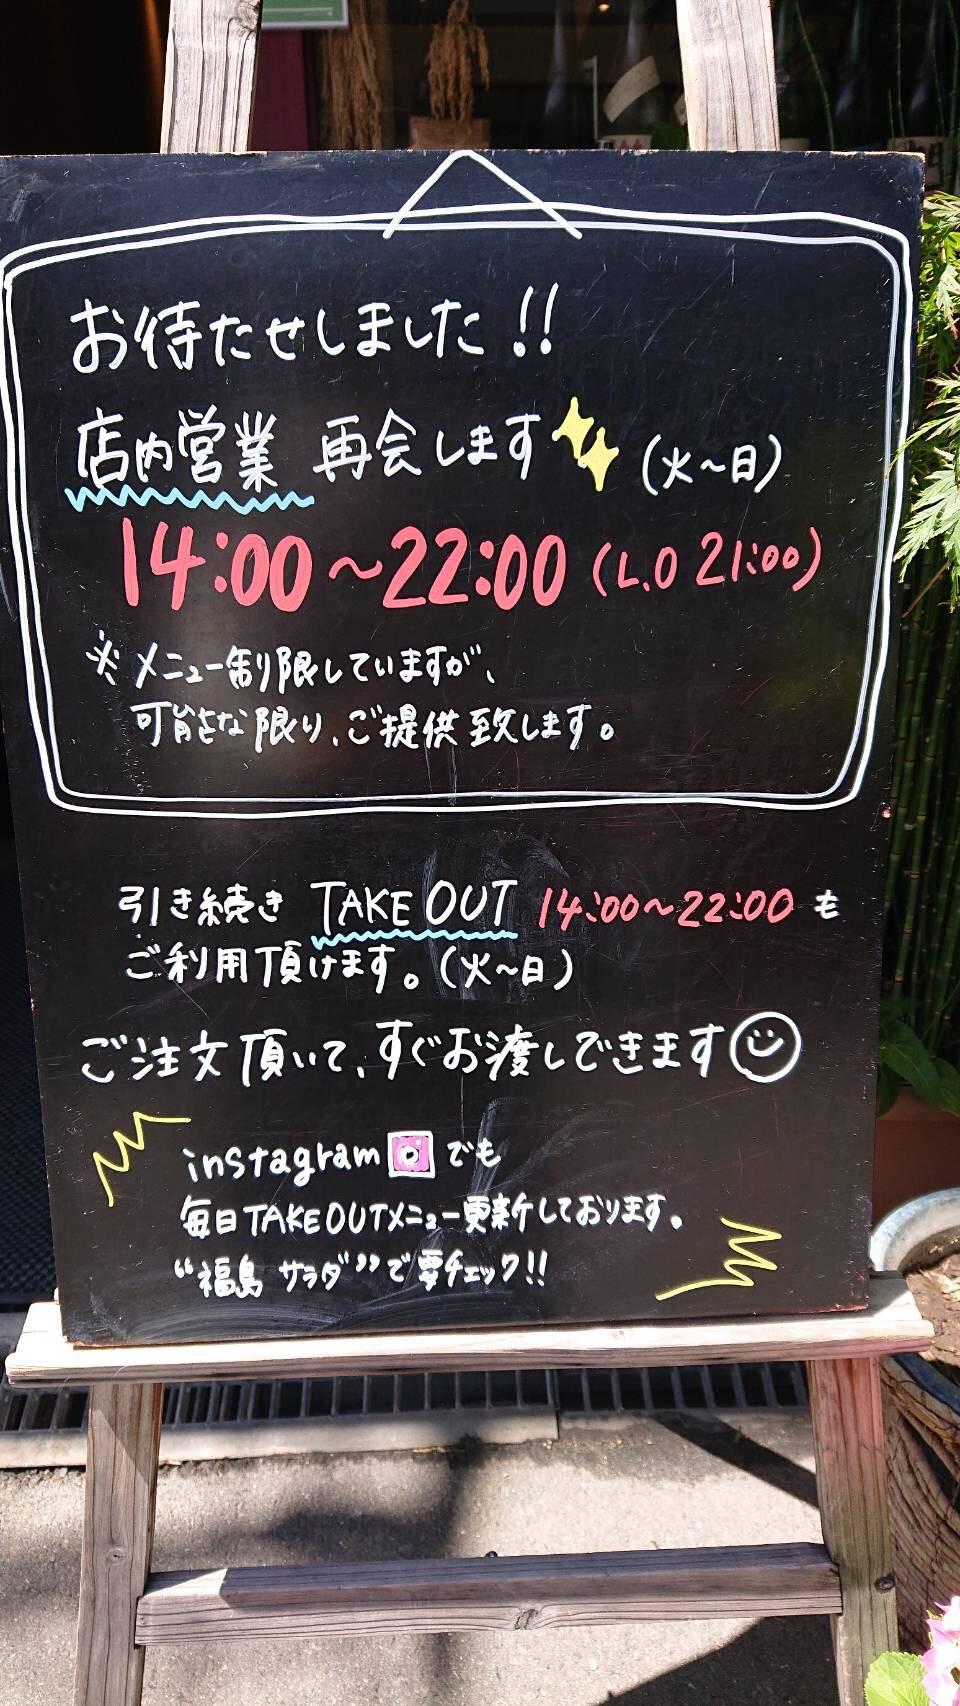 お待たせしました!!
店内営業 再会します (火〜日)
14:00〜22:00 (L.O 21:00)
※メニュー制限していますが、
可能な限り、ご提供致します。
引き続き TAKE OUT 14:00〜22:00 も
ご利用頂けます。(火〜日)
ご注文頂いて、すぐお渡しできます
instagram でも
毎日TAKE OUTメニュー更新しております。
"福島 サラダ"で要チェック!!